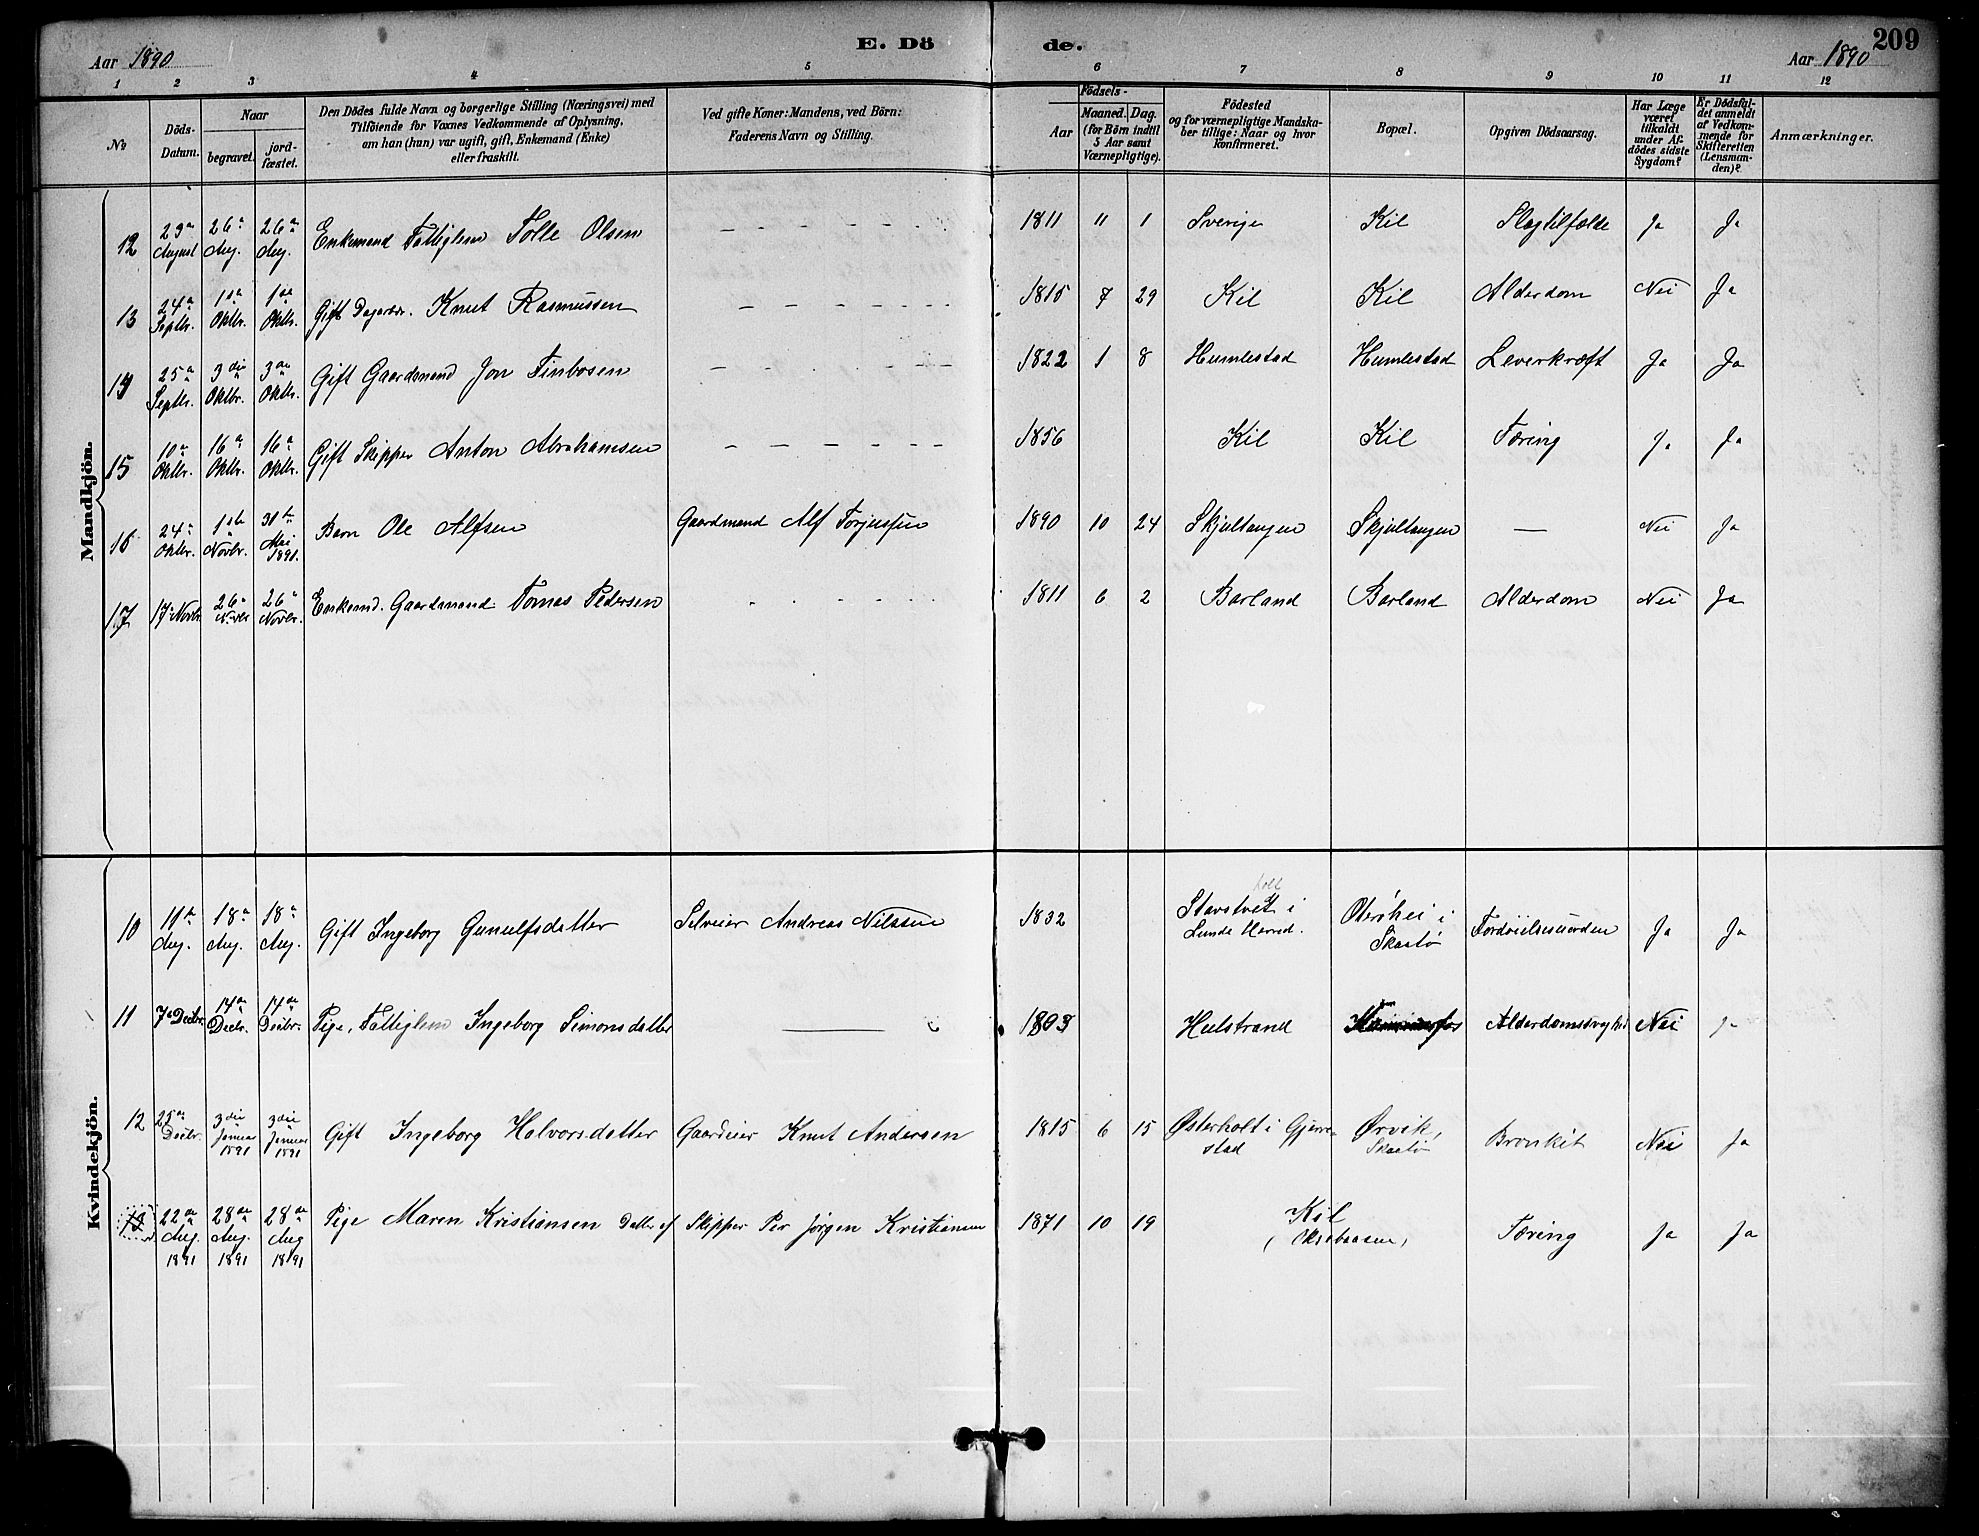 Aar 1890 E. Dö de. Aar 1890 209
1 2 3 4 5 6 7 8 9 10 11 12
No
Döds-Datum.
Naar
begravet.
jord-fæstet.
Den Dödes fulde Navn og borgerlige Stilling (Næringsvei) med
Tilföiende for Voxnes Vedkommende af Oplysning,
om han (hun) var ugift, gift, Enkemand (Enke)
eller fraskilt.
Ved gifte Koner: Mandens, ved Börn:
Faderens Navn og Stilling.
Födsels-
Aar
Maaned. Dag.
(for Börn indtil
5 Aar samt
Værnepligtige).
Födested
og for værnepligtige Mandska-
ber tillige: Naar og hvor
konfirmeret.
Bopæl.
Opgiven Dödsaarsag.
Har Læge
været
tilkaldt
under Af-
dödes sidste
Sygdom?
Er Dödsfal-
det anmeldt
af Vedkom-
mende for
Skifteretten
(Lensman-
den)?
Anmærkninger.
Mandkjön.
12 23 August 26 Aug. 26 Aug. Enkemand Fattiglem Tolle Olsen - - - - - - 1811 11 1 Sverige Kil Slagtilfælde Ja Ja
13 24 Septbr. 1 Oktbr. 1 Oktbr. Gift Knut Rasmussen - - - - - - 1815 7 29 Kil Kil Alderdom Nei Ja
14 25 Septbr. 3die Oktbr. 3 Oktbr. Gift Gaardmand Jon Finbosen - - - - - - 1822 1 8 Humlestad Humlestad Leverkræft Ja Ja
15 10 Oktbr. 16 Oktbr. 16 Oktbr. Gift Skipper Anton Abrahamsen - - - - - - 1856 Kil Kil Tæring Ja Ja
16 24 Oktbr. 1 Novbr. 31 Mai 1891. Barn Ole Alfsen Gaardmand Alf Torjussen 1890 10 24 Skjultangen Skjultangen — Nei Ja
17 17 Novbr. 26 Novbr 26 Novbr. Enkemd. Gaardmand Tomas Pedersen - - - - - - 1811 6 2 Barland Barland Alderdom Nei Ja
Kvindekjön.
10 11 Aug. 18 Aug. 18 Aug. Gift Ingeborg Gunulfsdatter Selveier Andreas Nilssen 1832 Stavstvet i Lunde Herred. i Skaatø Ja Ja
11 7 Decbr. 14 Decbr. 14de Decbr. Pige, Fattiglem Ingeborg Simonsdatter — 1803 Hulstrand Alderdomssvaghed Nei Ja
12 25 Decbr. 3die Januar 1891 3die Januar 1891 Gift Ingeborg Halvorsdatter Gaardeier Knut Andersen 1815 6 15 Østerholt i Gjerrestad Ørvik, Skaatø Bronkit Nei Ja
13 22 Aug. 1891 28 Aug. 1891 28 Aug 1891 Pige Maren Kristiansen Datter af Skipper Per Jørgen Kristiansen 1871 10 19 Kil Tæring Ja Ja